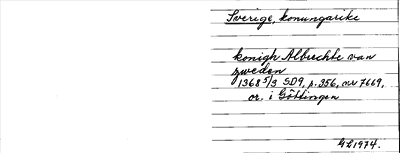 Sverige, konungarike
konigh Albrechte van
zweden
1368 5/3 SD9, p.356, nr 7669,
or. i Göttingen
GL1974.